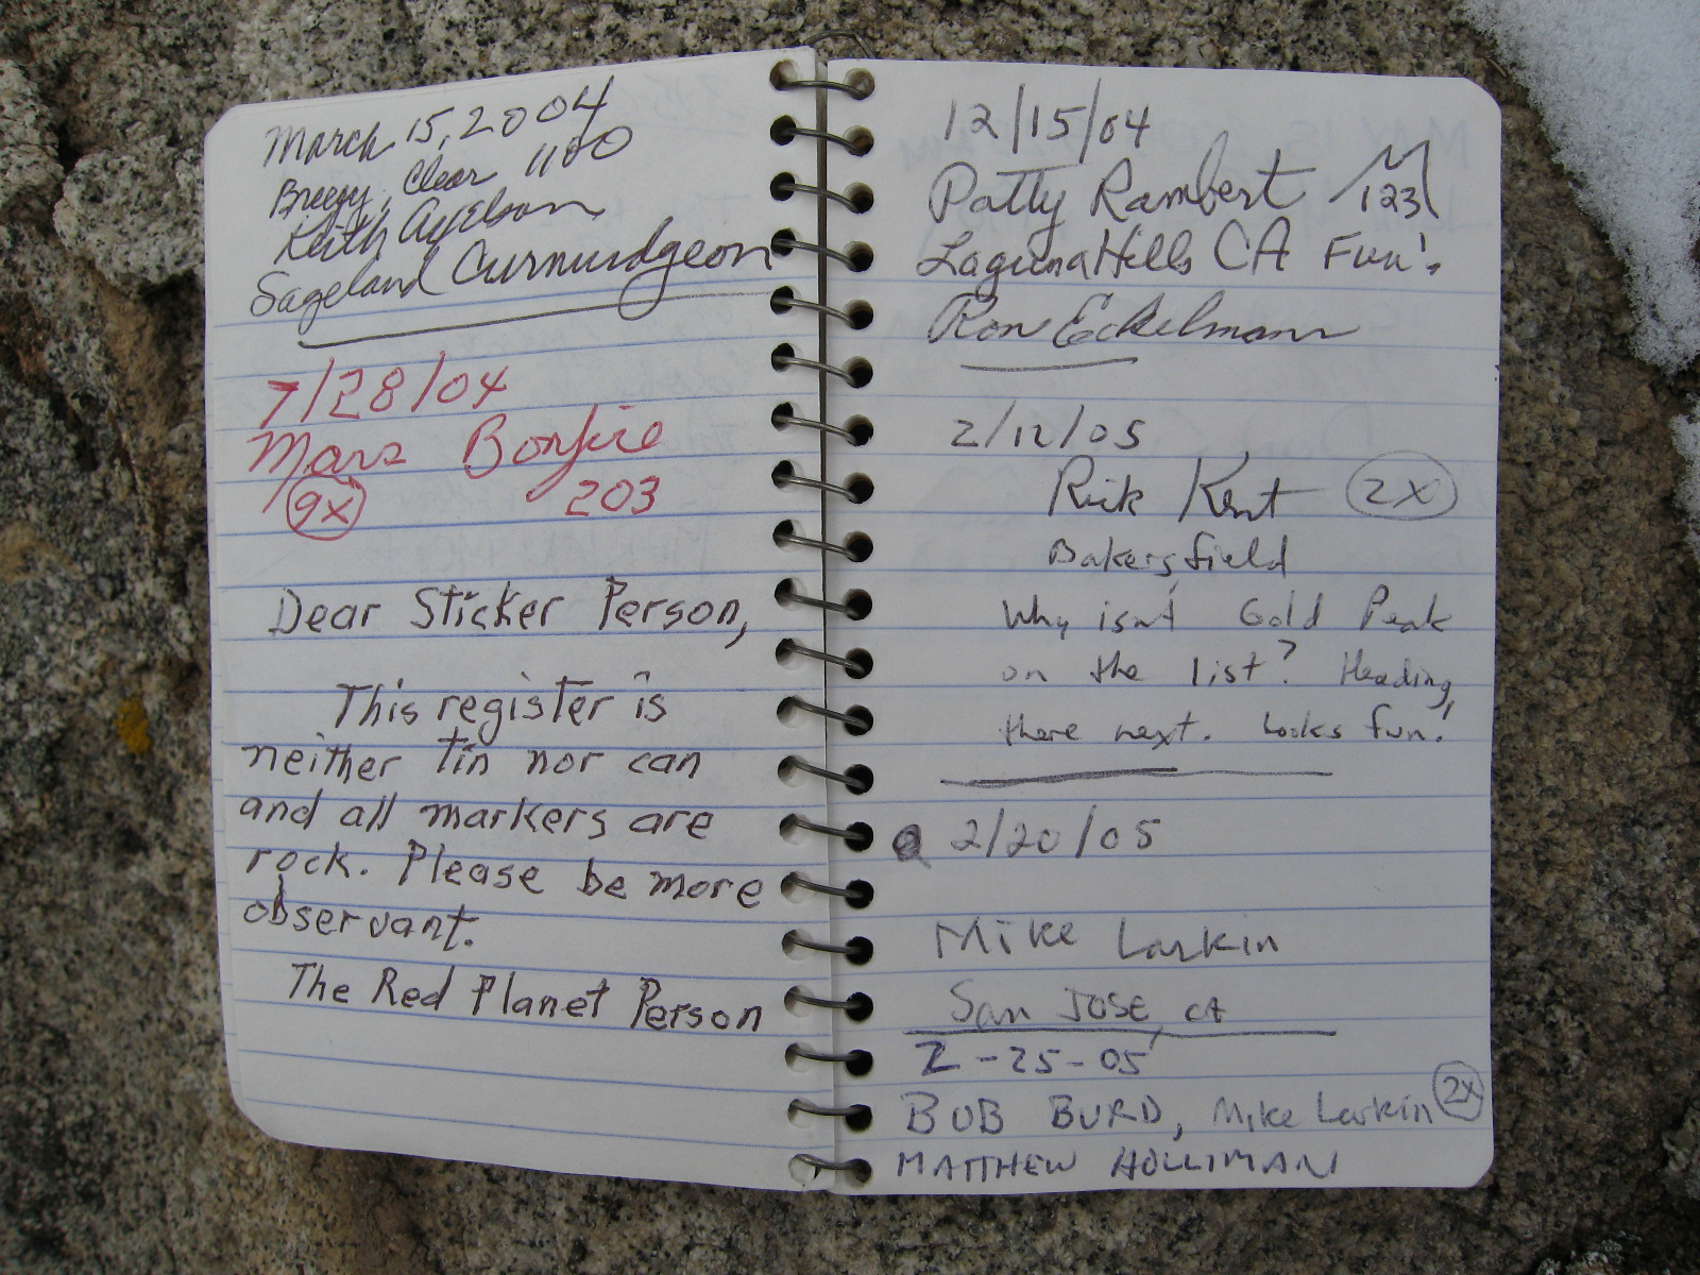 March 15, 2004
Breezy, Clear 1100
Keith Axelson
Sageland Curmurdgeon
7/28/04
Mars Bonfire
9x 203
Dear Sticker Person,
This register is
neither tin nor can
and all markers are
rock. Please be more
observant.
The Red Planet Person
12/15/04
Patty Rambert 123
Laguna Hills CA Fun!
Ron Eckelmann
2/12/05
Rick Kent 2x
Bakersfield
Why isn't Gold Peak
on the list? Heading
there next. Looks fun!
2/20/05
Mike Larkin
San Jose, CA
2-25-05
BOB BURD, Mike Larkin 2x
MATTHEW HOLLIMAN